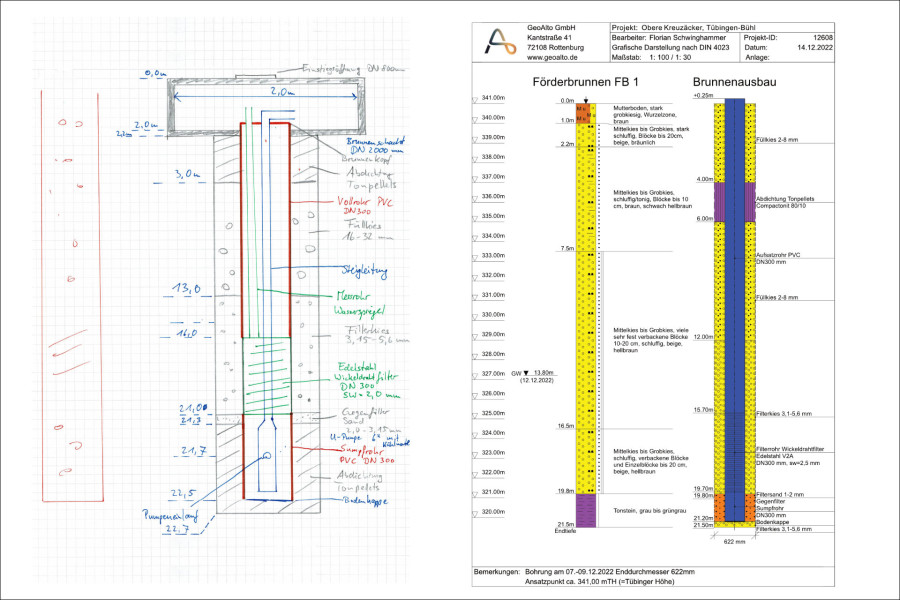 Einstiegsöffnung DN 800mm
0,0m
2,0m
2,0m
Brunnenschacht
DN 2000 mm
Brunnenkopf
Abdichtung
Tonpellets
3,0m
Vollrohr PVC
DN300
Füllkies
16-32 mm
Steigleitung
13,0
Messrohr
Wasserspiegel
16,0
Filterkies
3,15-5,6mm
Edelstahl
Wickeldrahtfilter
DN 300
SW = 2,0 mm
21,0
21,2
Gegenfilter
Sand
U-Pumpe 6" mit
21,7
Sumpfrohr
PVC DN 300
Abdichtung
Tonpellets
22,5
Bodenkappe
Pumpeneinlauf
22,7
GeoAlto GmbH
Kantstraße 41
72108 Rottenburg
www.geoalto.de
Projekt: Obere Kreuzäcker, Tübingen-Bühl
Bearbeiter: Florian Schwinghammer
Grafische Darstellung nach DIN 4023
Maßstab: 1: 100 / 1: 30
Projekt-ID: 12608
Datum: 14.12.2022
Anlage:
Förderbrunnen FB 1
Brunnenausbau
341.00m
340.00m
339.00m
338.00m
337.00m
336.00m
335.00m
334.00m
333.00m
332.00m
331.00m
330.00m
329.00m
328.00m
327.00m
326.00m
325.00m
324.00m
323.00m
322.00m
321.00m
320.00m
GW 13.80m
(12.12.2022)
0.0m
1.0m
2.2m
7.5m
16.5m
19.8m
21.5m
Endtiefe
Mu
Mu
Mutterboden, stark
grobkiesig, Wurzelzone,
braun
Mittelkies bis Grobkies, stark
schluffig, Blöcke bis 20cm,
beige, bräunlich
Mittelkies bis Grobkies,
schluffig/tonig, Blöcke bis 10
cm, braun, schwach hellbraun
Mittelkies bis Grobkies, viele
sehr fest verbackene Blöcke
10-20 cm, schluffig, beige,
hellbraun
Mittelkies bis Grobkies,
schluffig, verbackene Blöcke
und Einzelblöcke bis 20 cm,
beige, hellbraun
Tonstein, grau bis grüngrau
+0.25m
4.00m
6.00m
12.00m
15.70m
19.70m
19.80m
21.20m
21.50m
622 mm
Füllkies 2-8 mm
Abdichtung Tonpellets
Compactonit 80/10
Aufsatzrohr PVC
DN300 mm
Füllkies 2-8 mm
Filterkies 3,1-5,6 mm
Filterrohr Wickeldrahtfilter
Edelstahl V2A
DN300 mm, sw=2,5 mm
Filtersand 1-2 mm
Gegenfilter
Sumpfrohr
DN300 mm
Bodenkappe
Filterkies 3,1-5,6 mm
Bemerkungen: Bohrung am 07.-09.12.2022 Enddurchmesser 622mm
Ansatzpunkt ca. 341,00 mTH (=Tübinger Höhe)